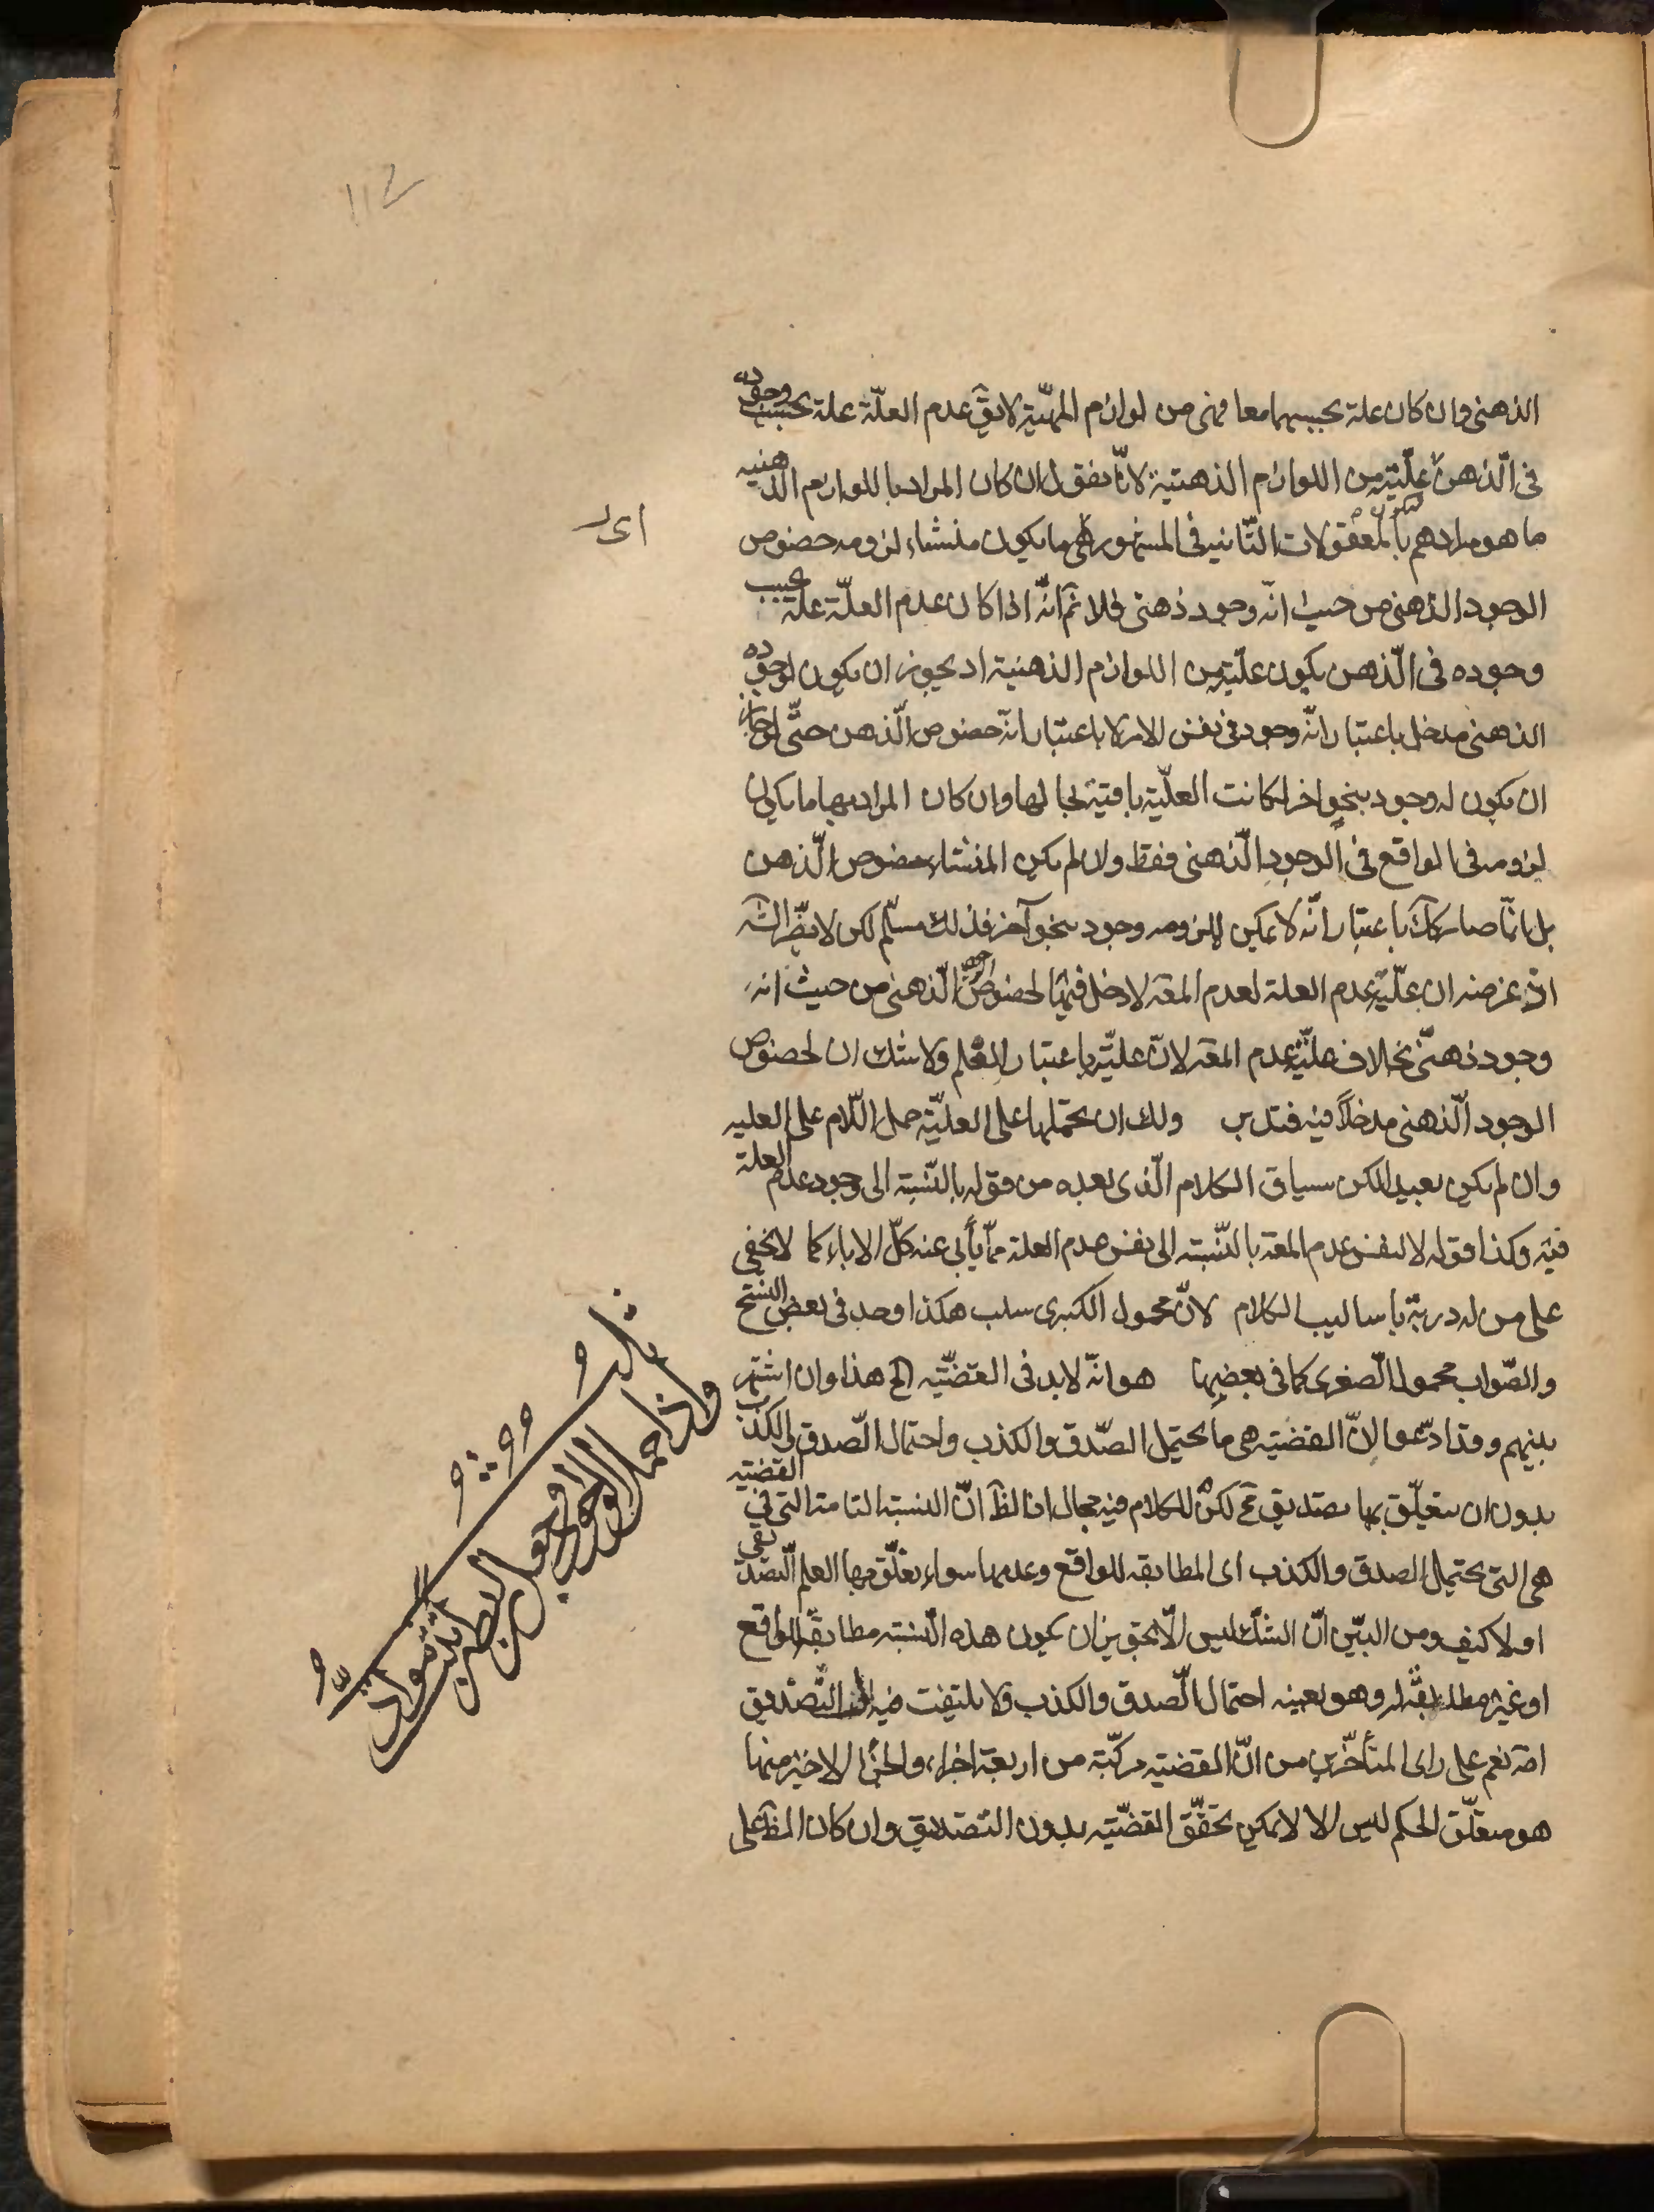 ١١٢
الذهنى وان كان علة بحسبهما معا فهى من لوازم المهيّة لايقَ عدم العلّة علة بحسب وجوده
فى الذهن فعلّيّته من اللوازم الذهنية لانّا نقول ان كان المراد باللوازم الذهنيه
ما هو مرادهم بالمعقولات الثّانيه فى المشهور هى ما يكون منشاء لزومه خصوص
الوجود الذهنى من حيث انّه وجود ذهنى فلا نمَ انّه اذا كان عدم العلّة علة بحسب
وجوده فى الذّهن يكون علّيّته من اللوازم الذهنية اذ يجوز ان يكون لوجوده
الذهنى مدخل باعتبار انّه وجود فى نفس الامر لا باعتبار انّه خصوص الذّهن حتّى لو جاز
ان يكون له وجود بنحو اخر لكانت العلّيّة باقية بحالها وان كان المراد بها ما يكون
لزومه فى الواقع فى الوجود الذّهنى فقط وان لم يكن المنشاء خصوص الذّهن
بل انّما صار كك باعتبار انّه لا يمكن لملزومه وجود بنحو آخر فذلك مسلّم لكن لا يضرّ الشَه
اذ غرضه ان علّيّة عدم العلة لعدم المعَه لا دخل فيها لخصوص الوجود الذّهنى من حيث انه
وجود ذهنىّ بخلاف علّيّة عدم المعَه لانّ علّيّته باعتبار العلم ولا شك ان لخصوص
الوجود الذّهنى مدخلاً فيه فتدبر ولك ان تحملها على العلّيّة حمل اللّام على العليه
وان لم يكن بعيدا لكن سياق الكلام الّذى بعده من قوله بالنّسبة الى وجود عدم العلة
فيه وكذا قوله لا لنفس عدم المعَه بالنّسبة الى نفس عدم العلة ممّا يأبى عنه كلّ الاباء كما لا يخفى
على من له دربة باساليب الكلام لانّ محمول الكبرى سلب هكذا وجد فى بعض النسخ
والصّواب محمول الصّغرى كما فى بعضها هو انّه لابد فى القضيّه الخ هذا وان اشتهر
بينهم وقد ادّعوا انّ القضيّه هى ما يحتمل الصّدق والكذب واحتمال الصّدق والكذب
بدون ان يتعلّق بها تصديق مح لكن للكلام فيه مجال اذ الظَ انّ النسبة التامة التى فى القضيّه
هى التى يحتمل الصدق والكذب اى المطابقه للواقع وعدمها سواء تعلّق بها العلم التّصديقى
او لا كيف ومن البيّن انّ الشّك ليس الّا تجويز ان يكون هذه النّسبه مطابقة للواقع
او غير مطابقة له وهو بعينه احتمال الصّدق والكذب ولا يلتفت فيه الى التّصديق
اصَ نعم على راى المتأخّرين من انّ القضيّه مركّبة من اربعة اجزاء والجزء الاخير منها
هو متعلّق الحكم ليس الا لا يمكن تحقّق القضيّه بدون التّصديق وان كان الظَ على